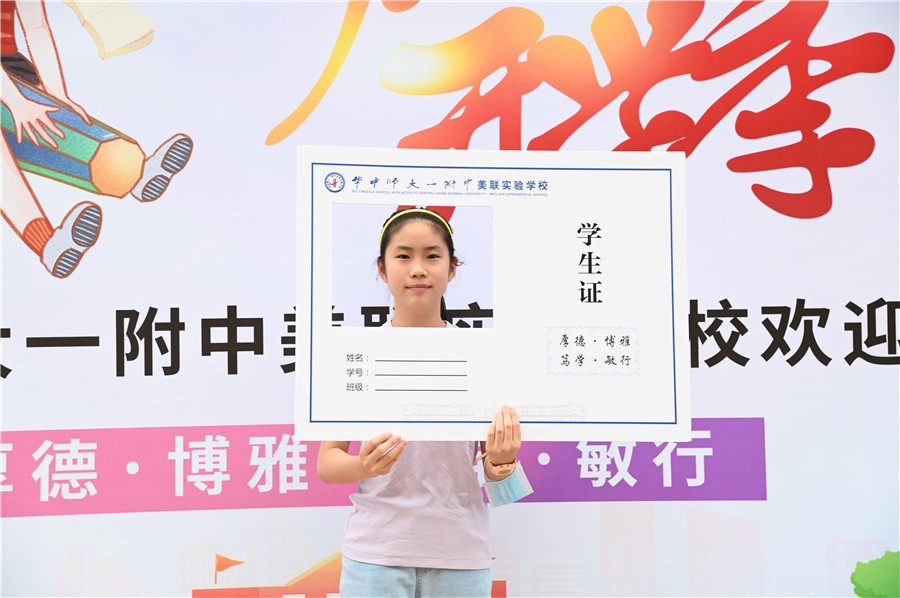 开学季
华中师大一附中美联实验学校
NO.1 MIDDLE SCHOOL AFFILIATED TO CENTRAL CHINA NORMAL UNIVERSITY MEILIAN EXPERIMENTAL SCHOOL
学生证
厚德·博雅
笃学·敏行
姓名：
学号：
班级：
大一附中美联实 校欢迎
厚德·博雅 ·敏行